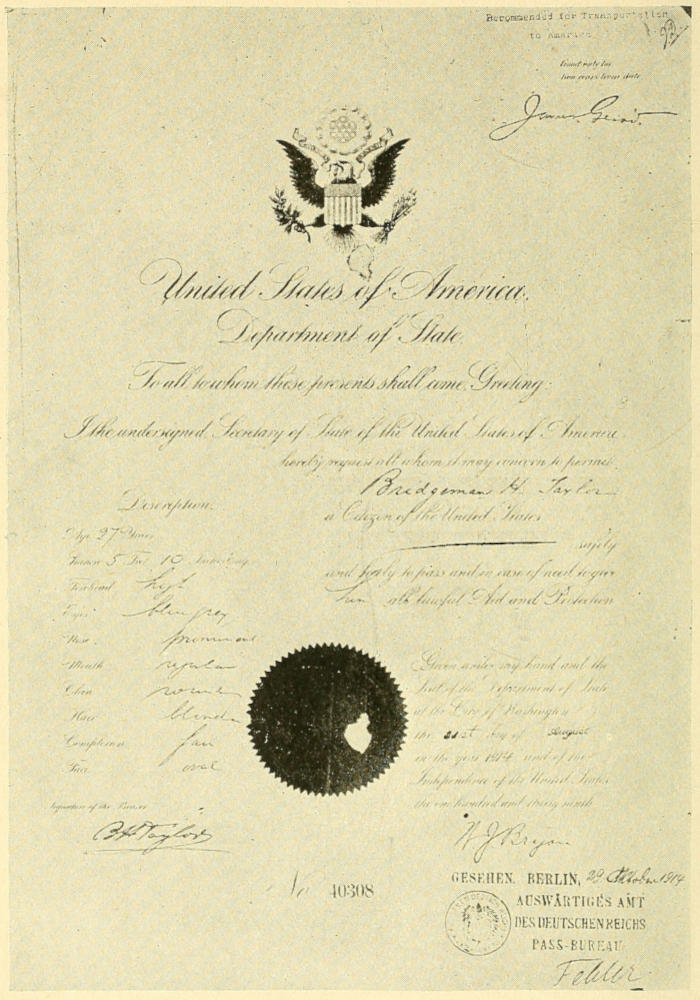 Recommended for Transportation
to America
Good only for
two years from date
James Gerard.
United States of America,
Department of State,
To all to whom these presents shall come, Greeting:
I the undersigned, Secretary of State of the United States of America,
hereby request all whom it may concern to permit
Bridgeman H. Taylor
a Citizen of the United States
safely
and freely to pass and in case of need to give
him all lawful Aid and Protection
Description,
Age 27 Years
Stature 5 Feet 10 Inches Eng.
Forehead high
Eyes blue grey
Nose prominent
Mouth regular
Chin round
Hair blonde
Complexion fair
Face oval
Signature of the Bearer
B H Taylor
Given under my hand and the
Seal of the Department of State
at the City of Washington
the 21st day of August
in the year 1914 and of the
Independence of the United States
the one hundred and thirty ninth.
W J Bryan
No 40308
GESEHEN. BERLIN, 29. Oktober 1914
AUSWÄRTIGES AMT
DES DEUTSCHEN REICHS
PASS-BUREAU